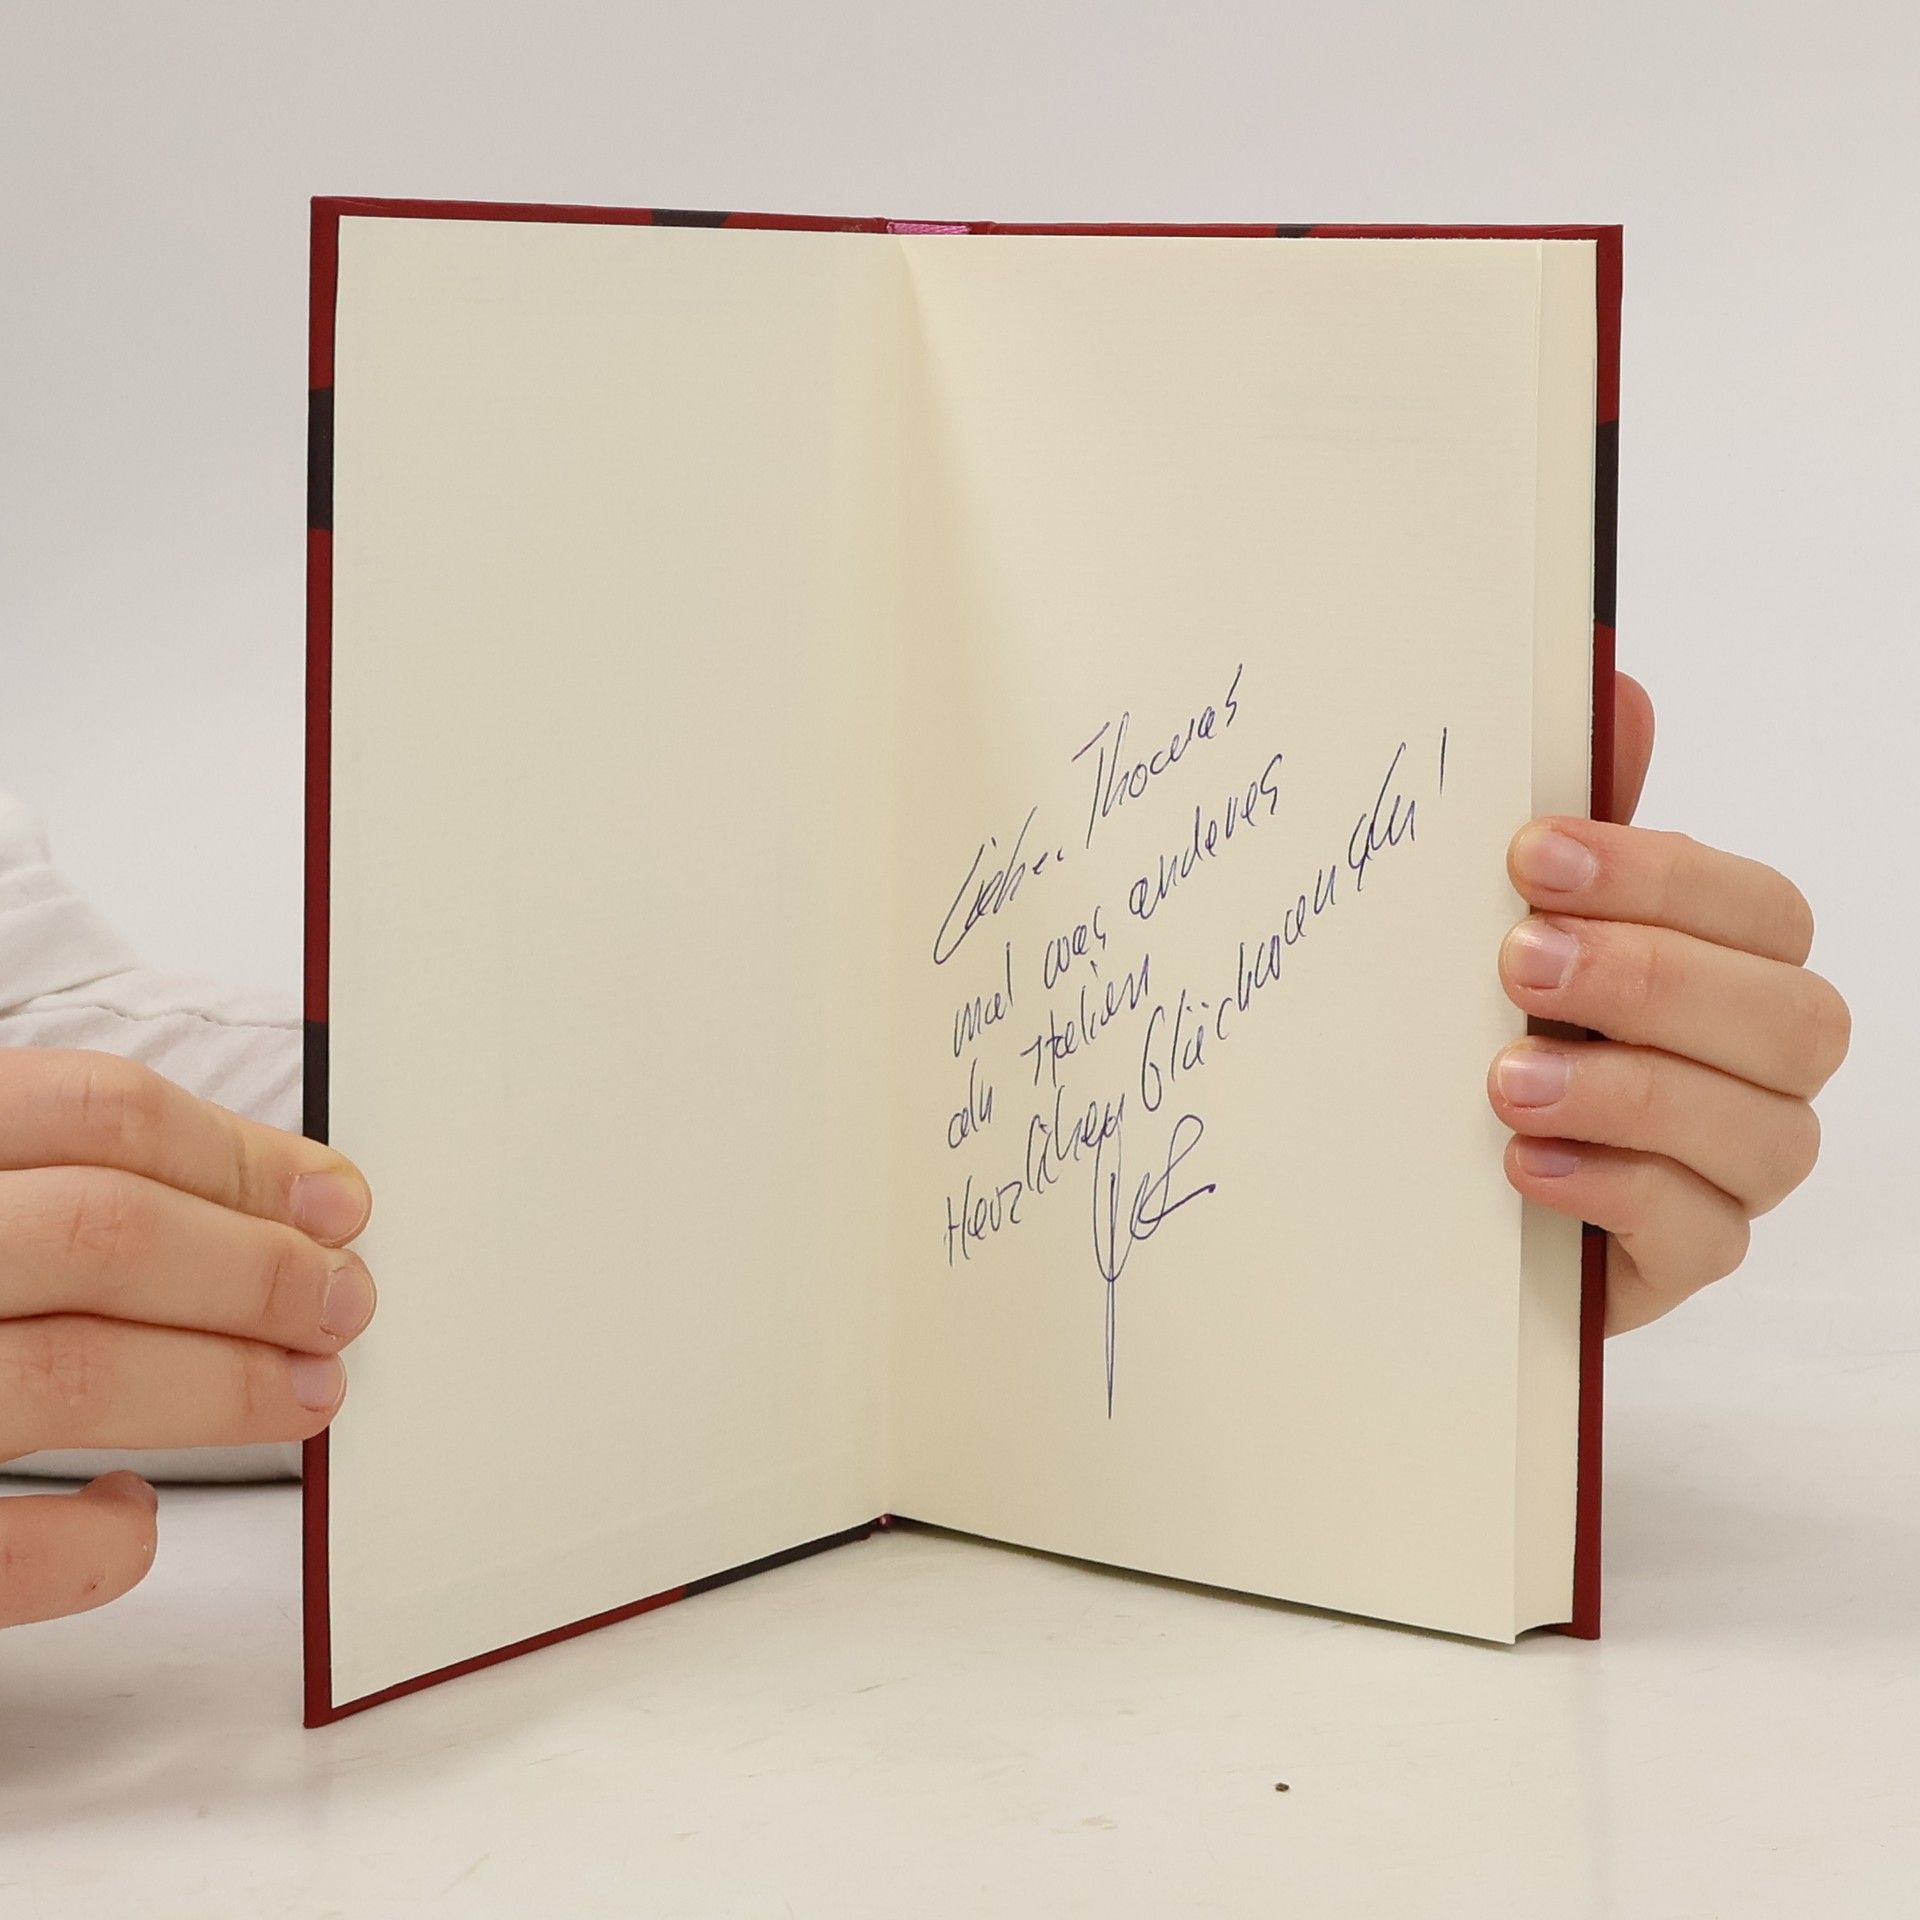 Lieber Thomas
mal was anderes
als Italien
Herzlichen Glückwunsch!